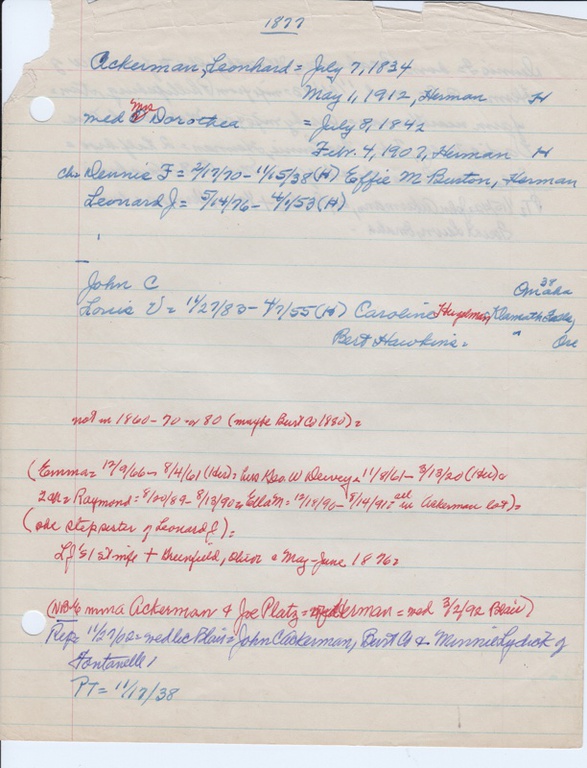 1877
Ackerman, Leonhard = July 7, 1834
May 1, 1912, Herman H
Mrs
med Dorothea = July 8, 1842
Febr. 4, 1907, Herman H
ch= Dennis F = 2/17/70 - 11/15/38 (H) Effie M Burton, Herman
Leonard J = 5/14/76 - 4/1/53 (H)
John C
38
Omaha
Louis V = 11/27/83 - 4/7/55 (H) Caroline Klamath Falls,
Bert Hawkins = " Ore
not in 1860 - 70 or 80 (maybe Burt Co 1880) =
(Emma = 12/9/66 - 8/4/61 (Her) = hus Geo W Dewey = 11/8/61 - 3/13/20 (Her) =
2 ch = Raymond = 8/20/89 - 8/13/90 = Ella M = 12/18/90 - 8/14/91 = all in Ackerman lot) =
(one stepsister of Leonard J) =
LJ's 1st wife + Greenfield, = May - June 1876 =
(NB = Emma Ackerman & Joe Platz = Herman = med 3/2/92 Blair)
Rep = 11/27/02 = med lic Blair = John C Ackerman, Burt Co & Minnie Lydick of
Fontanelle
PT = 11/17/38